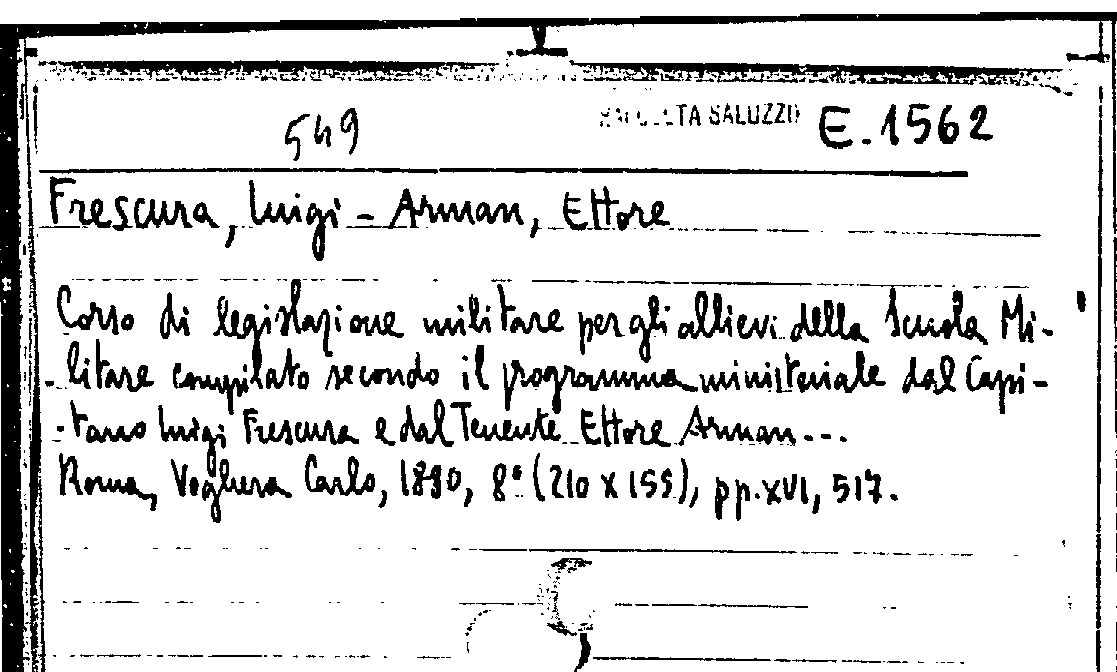 549 RACCOLTA SALUZZO E.1562
Frescura, Luigi - Arman, Ettore
Corso di legislazione militare per gli allievi della Scuola Mi-
-litare compilato secondo il programma ministeriale dal Capi-
-tano Luigi Frescura e dal Tenente Ettore Arman...
Roma, Voghera Carlo, 1890, 8° (210 x 155), pp. XVI, 517.